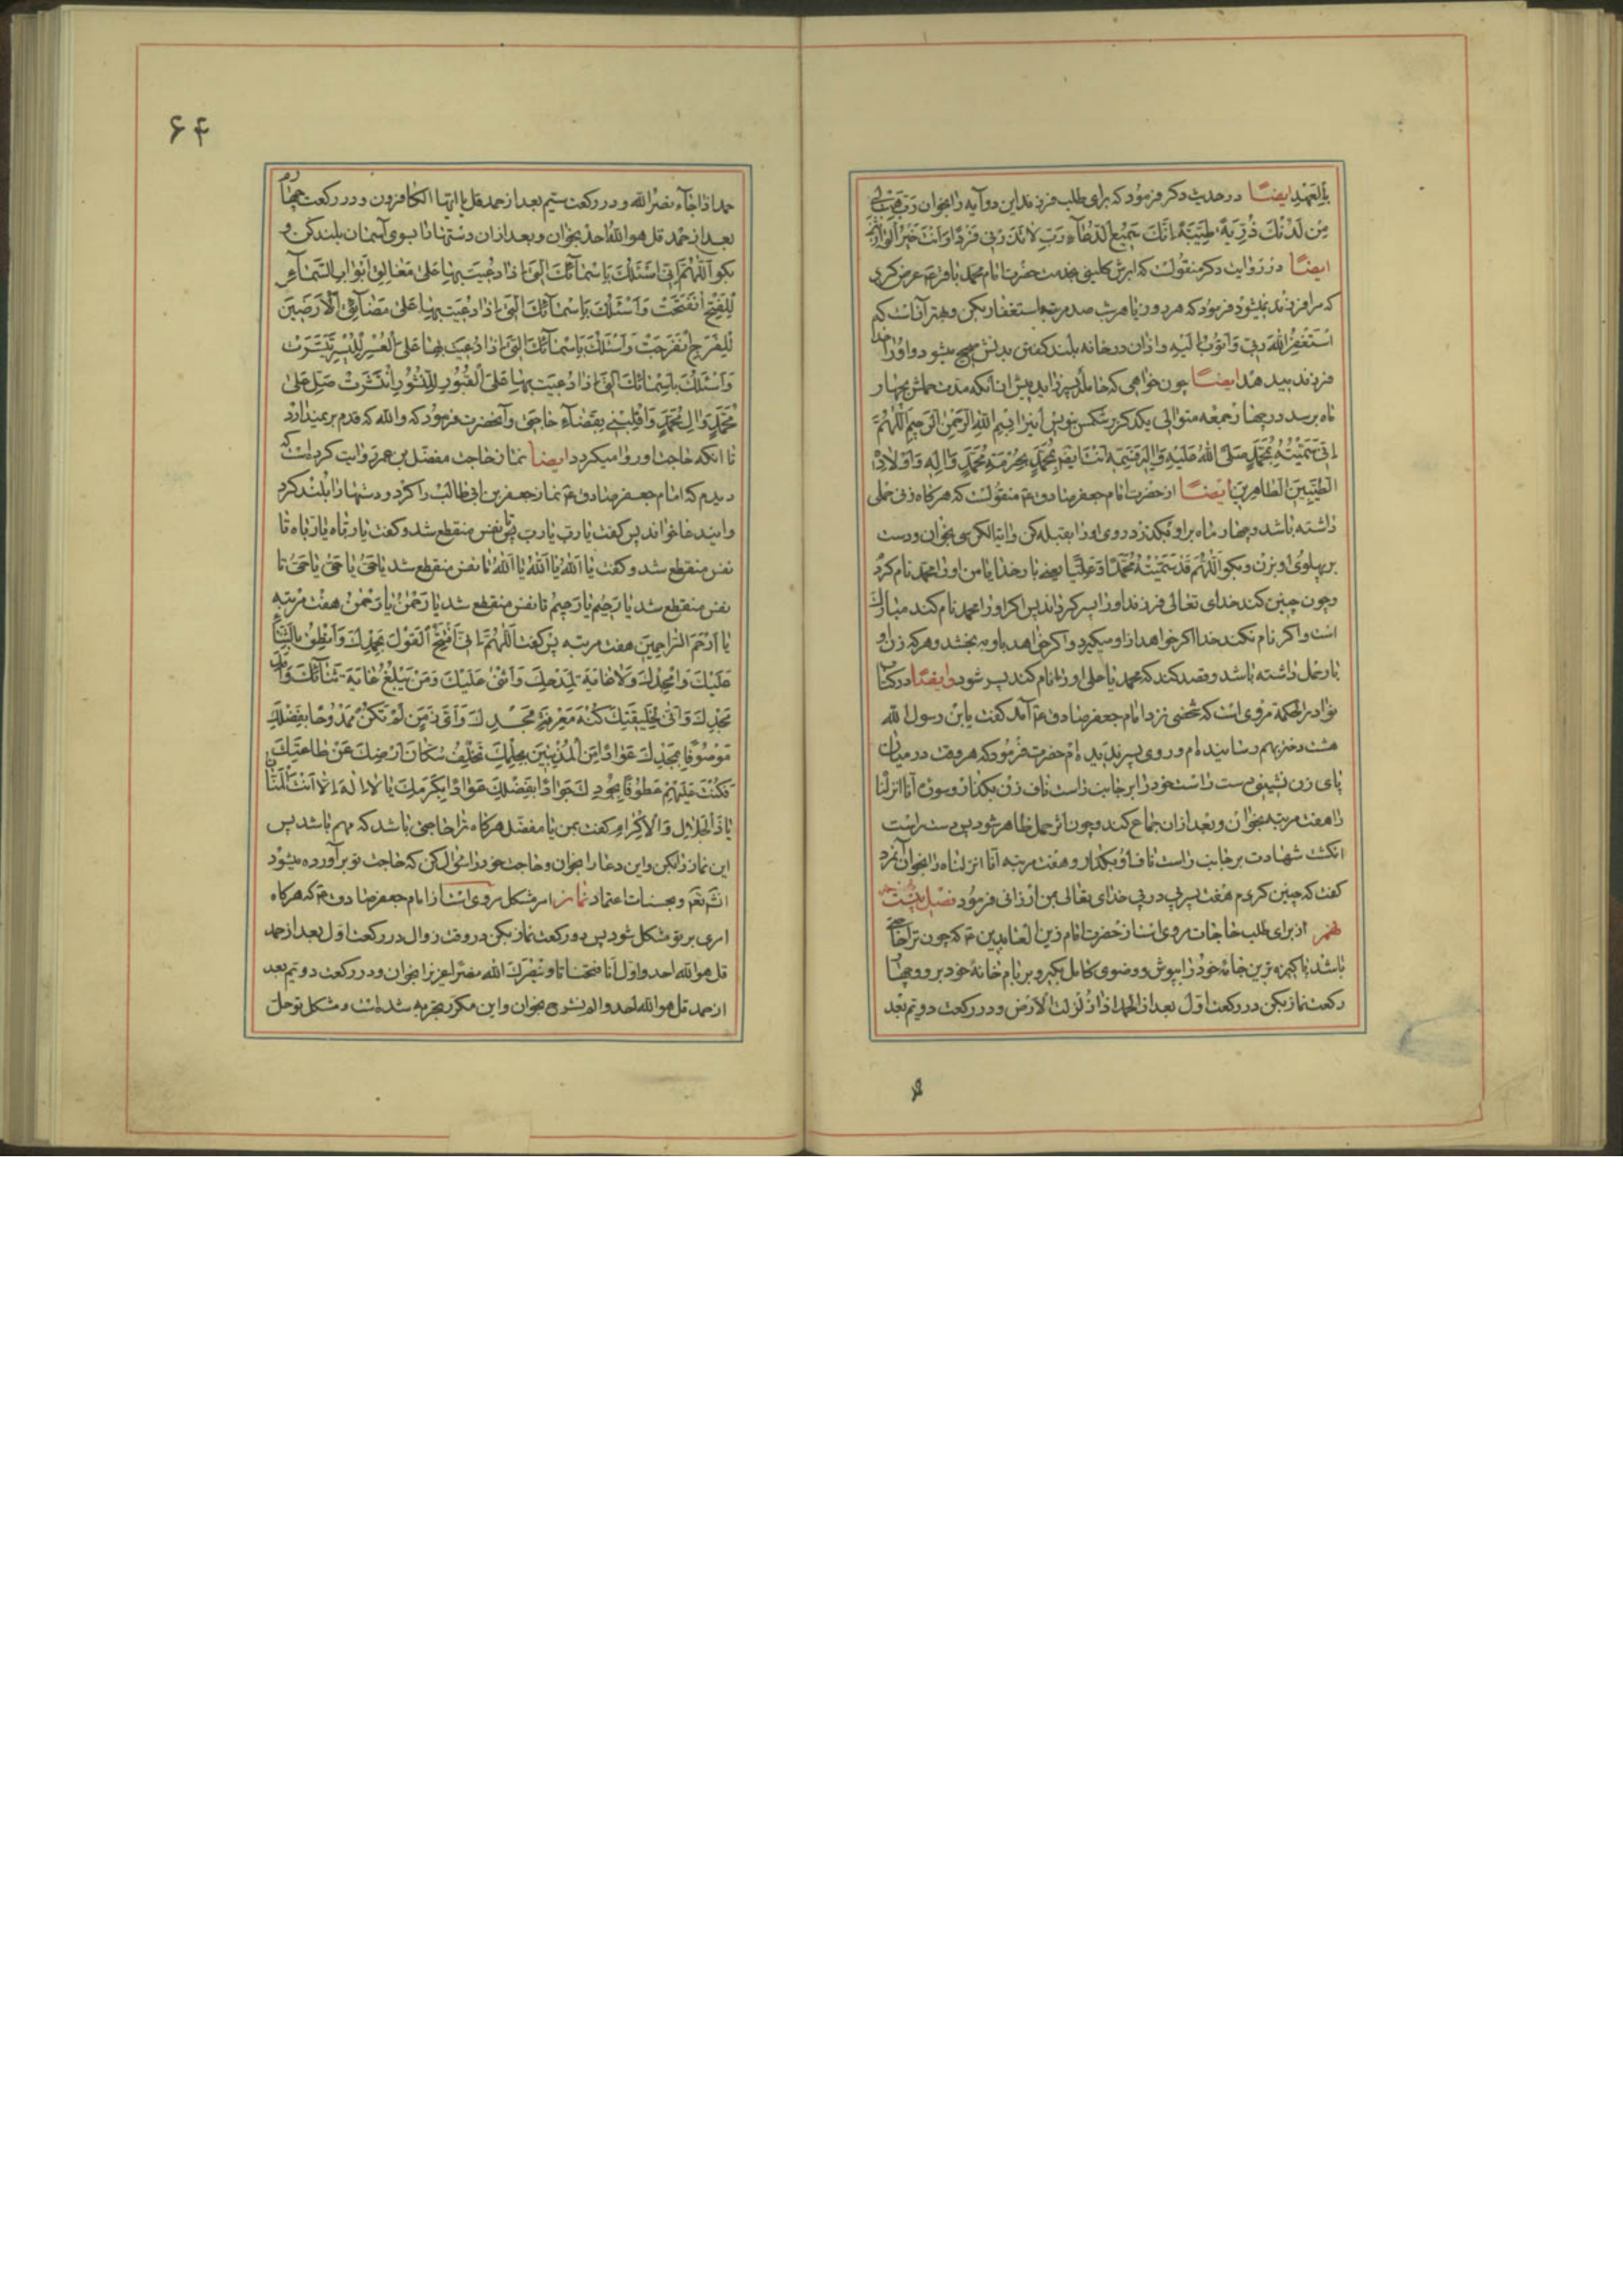 بالعهد ایضاً در حدیث دکر فرمود که برای طلب فرزند این دو آیه را بخوان رَبِّ هَبْ لی
مِن لَدُنْكَ ذُرِّیَةً طَیِّبَةً اِنَّكَ سَمیعُ الدُّعآءِ رَبِّ لا تَذَرْنی فَرْدًا وَاَنْتَ خَیْرُ الْوارِثینَ
ایضاً در روایت دکر منقولست که ابرش کلبی بخدمت حضرت امام محمد باقر ع عرض کرد
که مرا فرزند نمیشود فرمود که هر روز یا هر شب صد مرتبه استغفار بکن و بهتر آنست که
اَسْتَغْفِرُ اللهَ رَبّی وَاَتُوبُ اِلَیْهِ و اذان در خانه بلند کفتن بدنش صحیح میشود و او را خدا
فرزند بیدهد ایضاً چون خواهی که حامله پسر زاید پیش از آنکه مدت حملش بچهار
ماه برسد در چهار جمعه متوالی یکدکر بر شکمش بنویس این را بِسْمِ اللهِ الرَّحْمنِ الرَّحیمِ اَللّهُمَّ
اِنّی سَمَّیْتُهُ بِمُحَمَّدٍ صَلَّی اللهُ عَلَیْهِ وَالِهِ بِحُرْمَةِ مُحَمَّدٍ وَالِهِ وَاَوْلادِهِ
الطَّیِّبینَ الطّاهِرینَ ایضاً از حضرت امام جعفر صادق ع منقولست که هر کاه زنی حملی
داشته باشد و چهار ماه بر او بکذرد روی او را بقبله کن و ایة الکرسی بخوان و دست
بر پهلوی او بزن و بکو اَللّهُمَّ قَدْ سَمَّیْتُهُ مُحَمَّدًا وَعَلِیًّا یعنی بار خدایا من او را محمد نام کردم
و چون چنین کند خدای تعالی فرزند او را پسر کرداند پس اکر او را محمد نام کند مبارک
است و اکر نام نکند خدا اکر خواهد از او میکیرد و اکر خواهد باو به بخشد و هر که زن او
بار حمل داشته باشد و قصد کند که محمد یا علی او را نام کند پسر شود و ایضاً در کتاب
نوادر الحکمة مرویست که شخصی نزد امام جعفر صادق ع آمد کفت یابن رسول الله
هشت دختر بهم رسانیده ام و روی پسر ندیده ام حضرت فرمود که هر وقت در میان
پای زن نشینی دست راست خود را بر جانب راست ناف زن بکذار و سوره انا انزلنا
را هفت مرتبه بخوان و بعد از ان جماع کند و چون اثر حمل ظاهر شود پس دست راست
انکشت شهادت بر جانب راست ناف او بکذار و هفت مرتبه انا انزلناه را بخوان آنمرد
کفت که چنین کردم هفت پسر پی در پی خدای تعالی بمن ارزانی فرمود فصل بیست
از برای طلب حاجات مرویست از حضرت امام زین العابدین ع که چون ترا حاجتی
باشد پاکیزه ترین جامهٔ خود را بپوش و وضوی کامل بکیر و بر بام خانهٔ خود برو و چهار
رکعت نماز بکن در رکعت اول بعد از الحمد اذا زُلْزِلَتِ الْاَرْضُ و در رکعت دویم بعد
۶۴
حمد اذا جآء نصر الله و در رکعت سیم بعد از حمد قل یا ایها الکافرون و در رکعت چهارم
بعد از حمد قل هو الله احد بخوان و بعد از ان دستها را بسوی آسمان بلند کن و
بکو اَللّهُمَّ اِنّی اَسْئَلُكَ بِاَسْمآئِكَ الَّتی اِذا دُعیتَ بِها عَلی مَغالِقِ اَبْوابِ السَّمآءِ
لِلْفَتْحِ انْفَتَحَتْ وَاَسْئَلُكَ بِاَسْمآئِكَ الَّتی اِذا دُعیتَ بِها عَلی مَضآئِقِ الْاَرَضینَ
لِلْفَرَجِ انْفَرَجَتْ وَاَسْئَلُكَ بِاَسْمآئِكَ الَّتی اِذا دُعیتَ بِها عَلَی الْعُسْرِ لِلْیُسْرِ تَیَسَّرَتْ
وَاَسْئَلُكَ بِاَسْمآئِكَ الَّتی اِذا دُعیتَ بِها عَلَی الْقُبُورِ لِلنُّشُورِ انْتَشَرَتْ صَلِّ عَلی
مُحَمَّدٍ وَالِ مُحَمَّدٍ وَاقْلِبْنی بِقَضآءِ حاجَتی و آنحضرت فرمود که والله که قدم بر نمیدارد
تا آنکه حاجت او روا میکردد ایضاً نماز حاجت مفضل بن عمر روایت کرده است که
دیدم که امام جعفر صادق ع نماز جعفر بن ابی طالب را کرد و دستها را بلند کرد
و این دعا خواند پس کفت یا ربّ یا ربّ تا نفس منقطع شد و کفت یا ربّاه یا ربّاه تا
نفس منقطع شد و کفت یا اَللهُ یا اَللهُ یا اَللهُ تا نفس منقطع شد یا حَیُّ یا حَیُّ یا حَیُّ تا
نفس منقطع شد یا رَحیمُ یا رَحیمُ تا نفس منقطع شد یا رَحْمنُ یا رَحْمنُ هفت مرتبه
یا اَرْحَمَ الرّاحِمینَ هفت مرتبه پس کفت اَللّهُمَّ اِنّی اَفْتَتِحُ الْقَوْلَ بِحَمْدِكَ وَاَنْطِقُ بِالثَّنآءِ
عَلَیْكَ وَاُمَجِّدُكَ وَلا غایَةَ لِمَدْحِكَ وَاُثْنی عَلَیْكَ وَمَنْ یَبْلُغُ غایَةَ ثَنآئِكَ وَاَمَدَ
مَجْدِكَ وَاَنّی لِخَلیقَتِكَ كُنْهُ مَعْرِفَةِ مَجْدِكَ وَاَیَّ زَمَنٍ لَمْ تَكُنْ مَمْدُوحًا بِفَضْلِكَ
مَوْصُوفًا بِمَجْدِكَ عَوّادًا عَلَی الْمُذْنِبینَ بِحِلْمِكَ تَخَلَّفَ سُكّانُ اَرْضِكَ عَنْ طاعَتِكَ
فَكُنْتَ عَلَیْهِمْ عَطُوفًا بِجُودِكَ جَوادًا بِفَضْلِكَ عَوّادًا بِكَرَمِكَ یا لا اِلهَ اِلّا اَنْتَ الْمَنّانُ
یا ذَا الْجَلالِ وَالْاِكْرامِ کفت بمن یا مفضل هر کاه ترا حاجتی باشد که مهم باشد پس
این نماز را بکن و این دعا را بخوان و حاجت خود را سؤال کن که حاجت تو برآورده میشود
انشآ تعم نماز امر مشکل مرویست از امام جعفر صادق ع که هر کاه
امری بر تو مشکل شود پس دو رکعت نماز بکن در وقت زوال در رکعت اول بعد از حمد
قل هو الله احد و اول انا فتحنا تا و ینصرك الله نصرًا عزیزا بخوان و در رکعت دویم بعد
از حمد قل هو الله احد و الم نشرح بخوان و این مکرر بتجربه شده است و مشکل تو حل